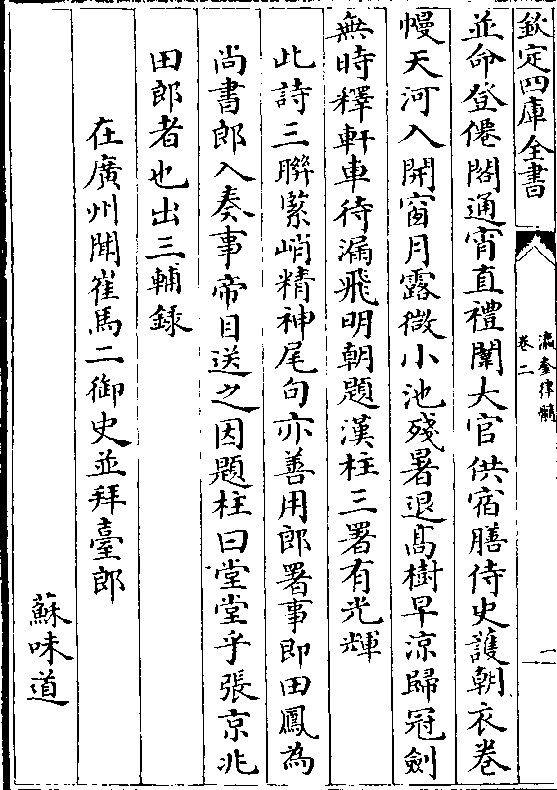 欽定四庫全書
瀛奎律髓
卷二
一
並命登僊閣通宵直禮闈大官供宿膳侍史護朝衣卷
幔天河入開窗月露微小池殘暑退高樹早涼歸冠劍
無時釋軒車待漏飛明朝題漢柱三署有光輝
此詩三聯緊峭精神尾句亦善用郎署事即田鳳為
尚書郎入奏事帝目送之因題柱曰堂堂乎張京兆
田郎者也出三輔録
在廣州聞崔馬二御史並拜臺郎
蘇味道